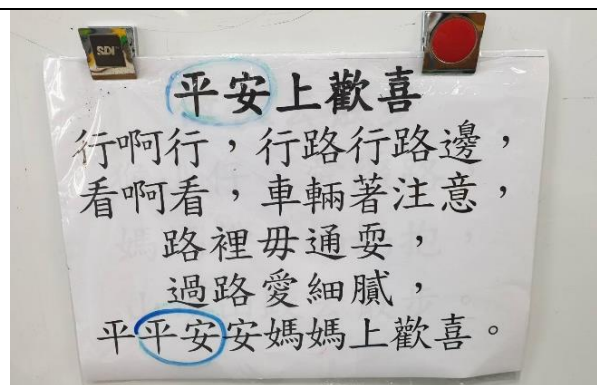 SDI
平安上歡喜
行啊行，行路行路邊，
看啊看，車輛著注意，
路裡毋通耍，
過路愛細膩，
平平安安媽媽上歡喜。